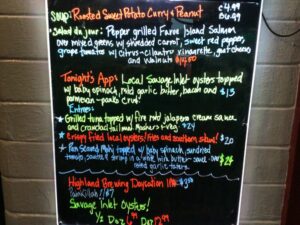 SOUP: Roasted Sweet Potato Curry & Peanut C 4.99
B 6.99
Salad du jour: Pepper grilled Faroe Island Salmon
over mixed greens w/ shredded carrot, sweet red pepper,
grape tomatoes w/ citrus-cilantro vinaigrette, goat cheese
and walnuts $14.50
Tonight's App: Local Savage Inlet oysters topped
w/ baby spinach, roasted garlic butter, bacon and
parmesan-panko crust $13
Entrees:
Grilled tuna topped w/ fire rstd jalapeno cream sauce
and crawdad tail meat $24
Crispy fried local oysters, fries and southern slaw! $20
Pan seared Mahi topped w/ baby spinach, sundried
tomato, sauteed shrimp in a white wine butter sauce over $24
rstd garlic taters
Highland Brewing Daycation IPA $3.50
Savage Inlet Oysters!
1/2 Doz 6.99 Doz 12.99